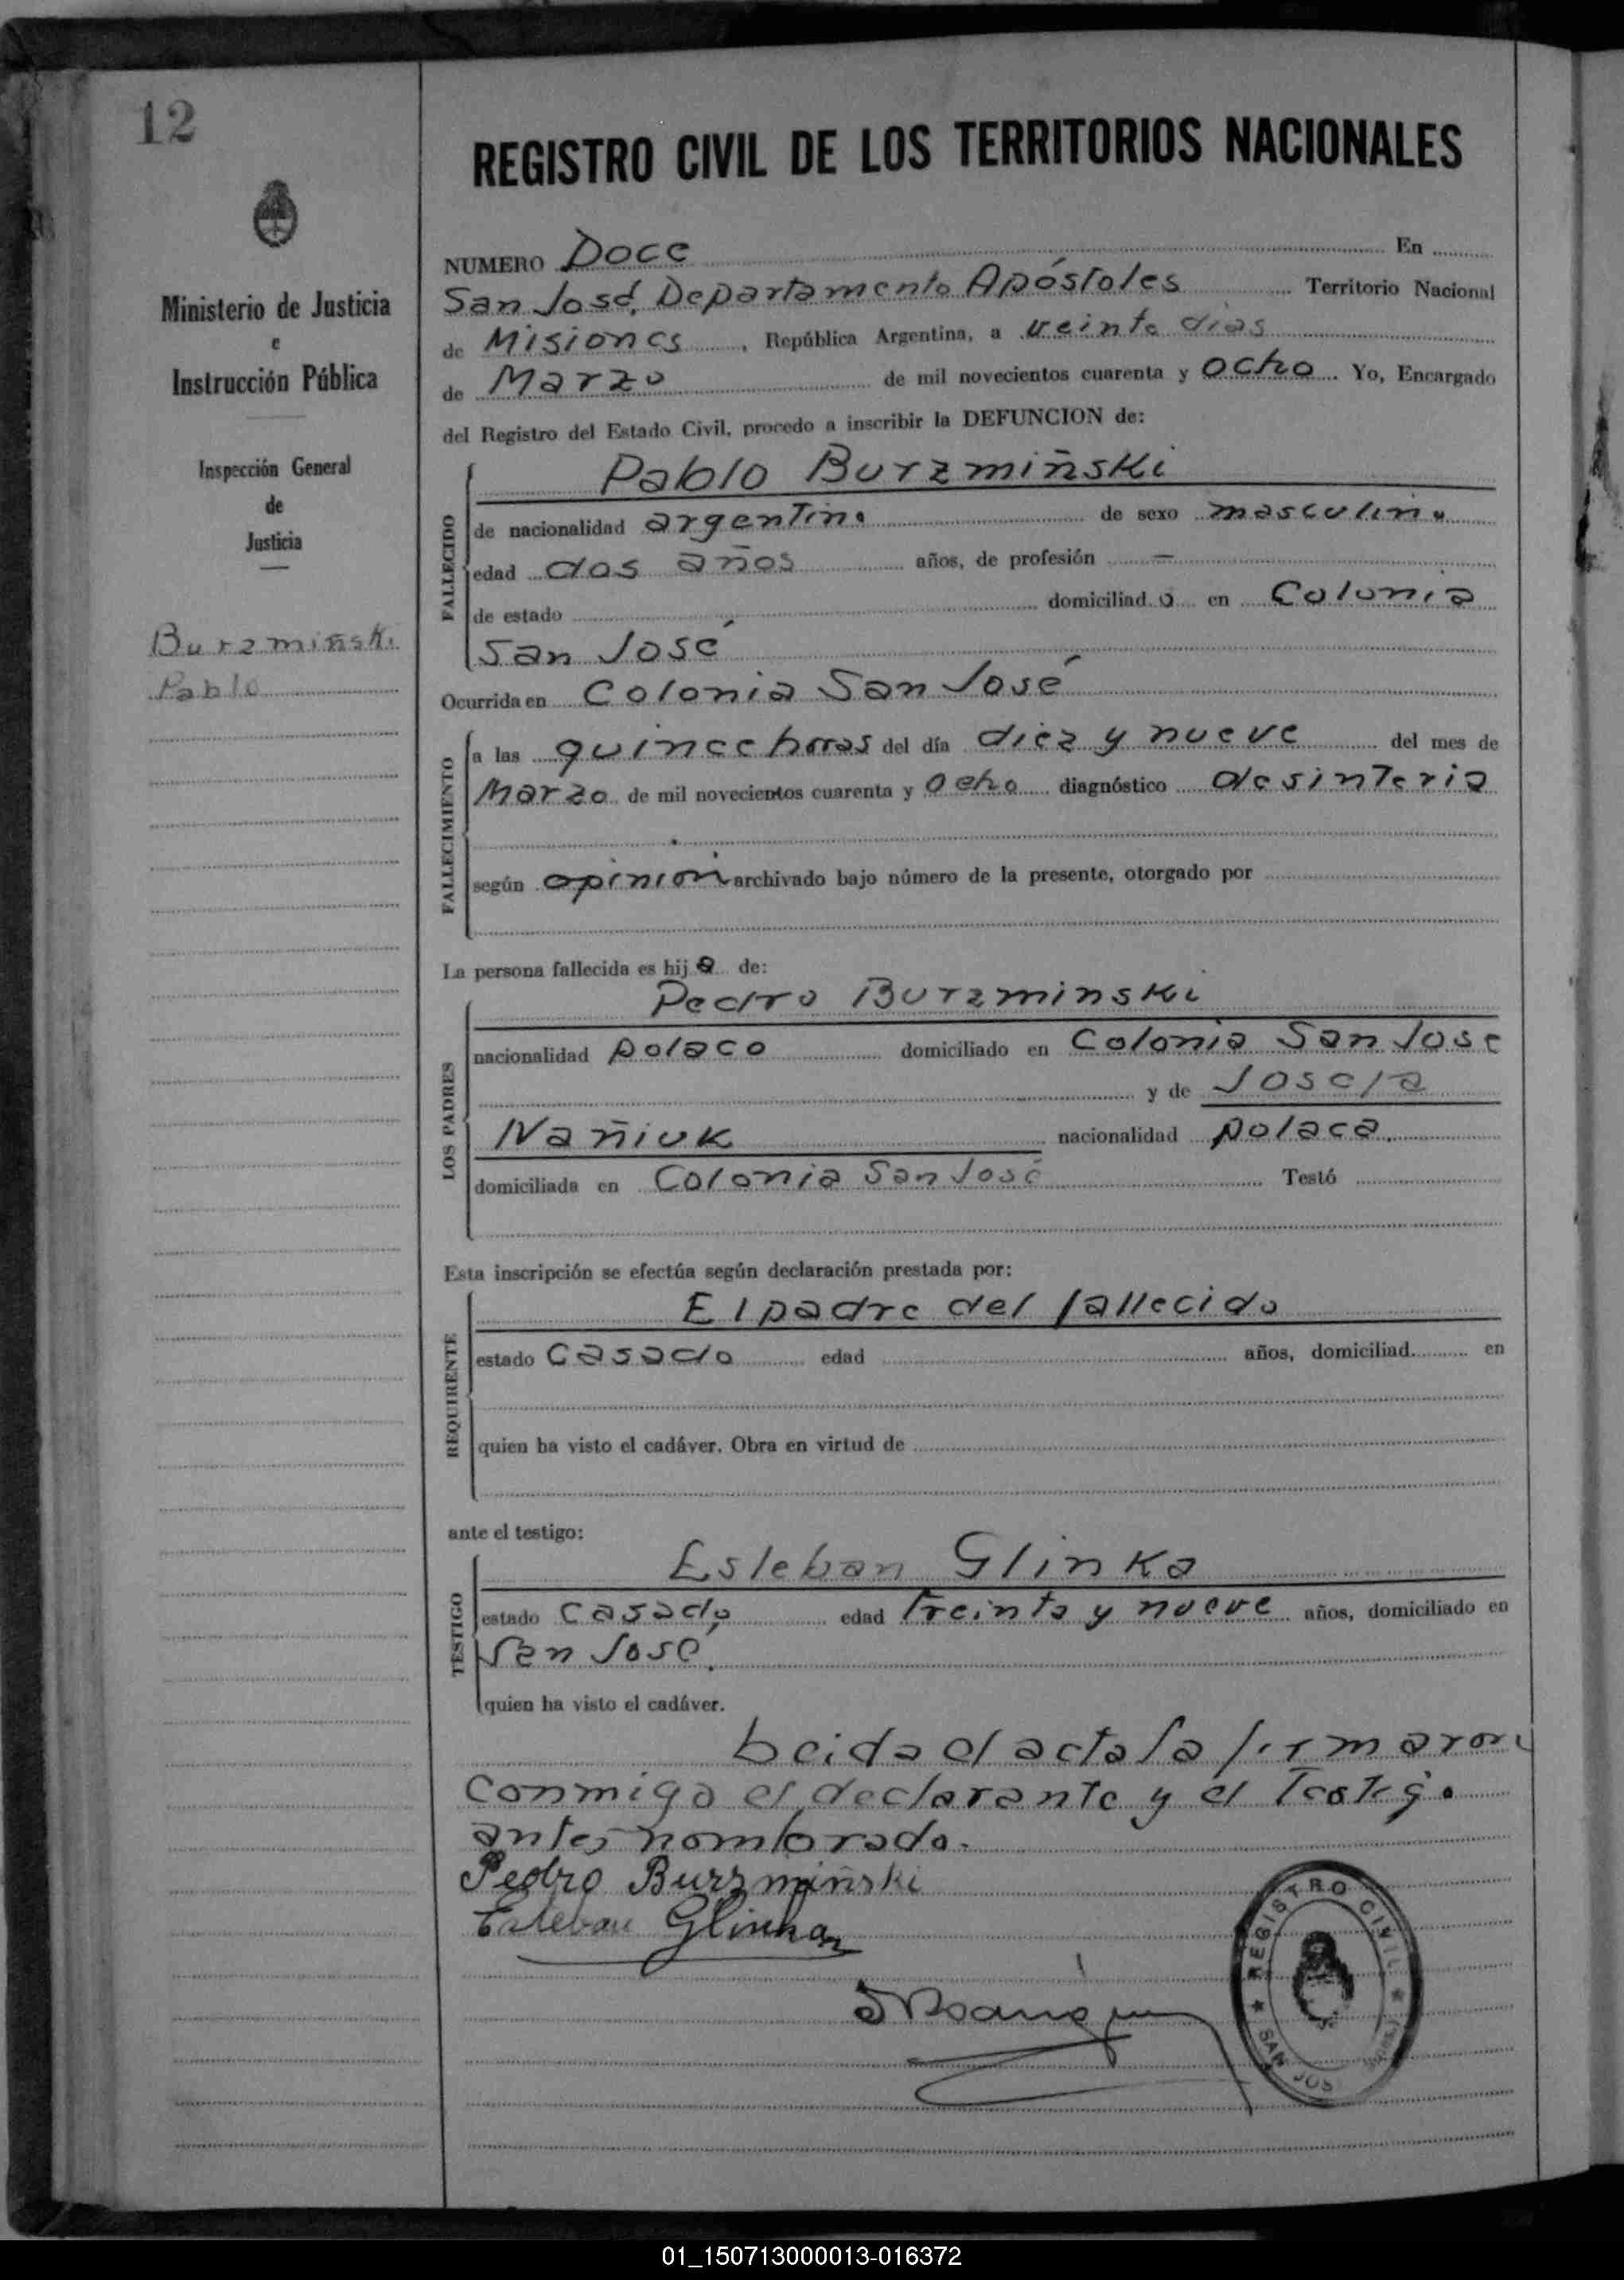 12
REGISTRO CIVIL DE LOS TERRITORIOS NACIONALES
Ministerio de Justicia
e
Instrucción Pública
Inspección General
de
Justicia
Burzmiñski
Pablo
NUMERO Doce En
San José, Departamento Apóstoles Territorio Nacional
de Misiones, República Argentina, a veinte dias
de Marzo de mil novecientos cuarenta y ocho. Yo, Encargado
del Registro del Estado Civil, procedo a inscribir la DEFUNCION de:
FALLECIDO
Pablo Burzmiñski
de nacionalidad argentino de sexo masculino
edad dos años años, de profesión —
de estado domiciliado en Colonia
San José
Ocurrida en Colonia San José
FALLECIMIENTO
a las quince horas del día diez y nueve del mes de
Marzo de mil novecientos cuarenta y ocho diagnóstico desinteria
según opinión archivado bajo número de la presente, otorgado por
La persona fallecida es hijo de:
LOS PADRES
Pedro Burzminski
nacionalidad polaco domiciliado en Colonia San Jose
y de Josefa
Nañiuk nacionalidad polaca.
domiciliada en Colonia San José Testó
Esta inscripción se efectúa según declaración prestada por:
REQUIRENTE
El padre del fallecido
estado casado edad años, domiciliad en
quien ha visto el cadáver. Obra en virtud de
ante el testigo:
TESTIGO
Esteban Glinka
estado casado edad treinta y nueve años, domiciliado en
San José.
quien ha visto el cadáver.
Leida el acta la firmaron
conmigo el declarante y el testigo
antes nombrado.
Pedro Burzmiñski
Esteban Glinka
REGISTRO CIVIL
SAN JOS
01_150713000013-016372